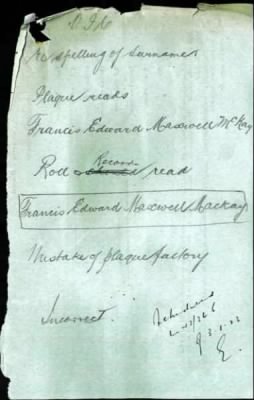 Re spelling of Surname
Plaque reads
Francis Edward Maxwell McKay
Roll Record read
Francis Edward Maxwell Mackay
Mistake of plaque factory
Incorrect.